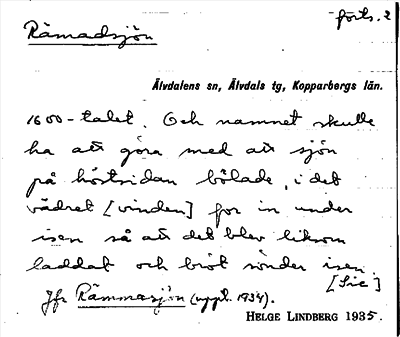 forts. 2
Råmadsjön
Älvdalens sn, Älvdals tg, Kopparbergs län.
1600-talet. Och namnet skulle
ha att göra med att sjön
på höstsidan bölade, i det
vädret [vinden] for in under
isen så att det blev liksom
laddat och bröt sönder isen.
[Sic]
Jfr Råmmasjön (uppt. 1934).
HELGE LINDBERG 1935.